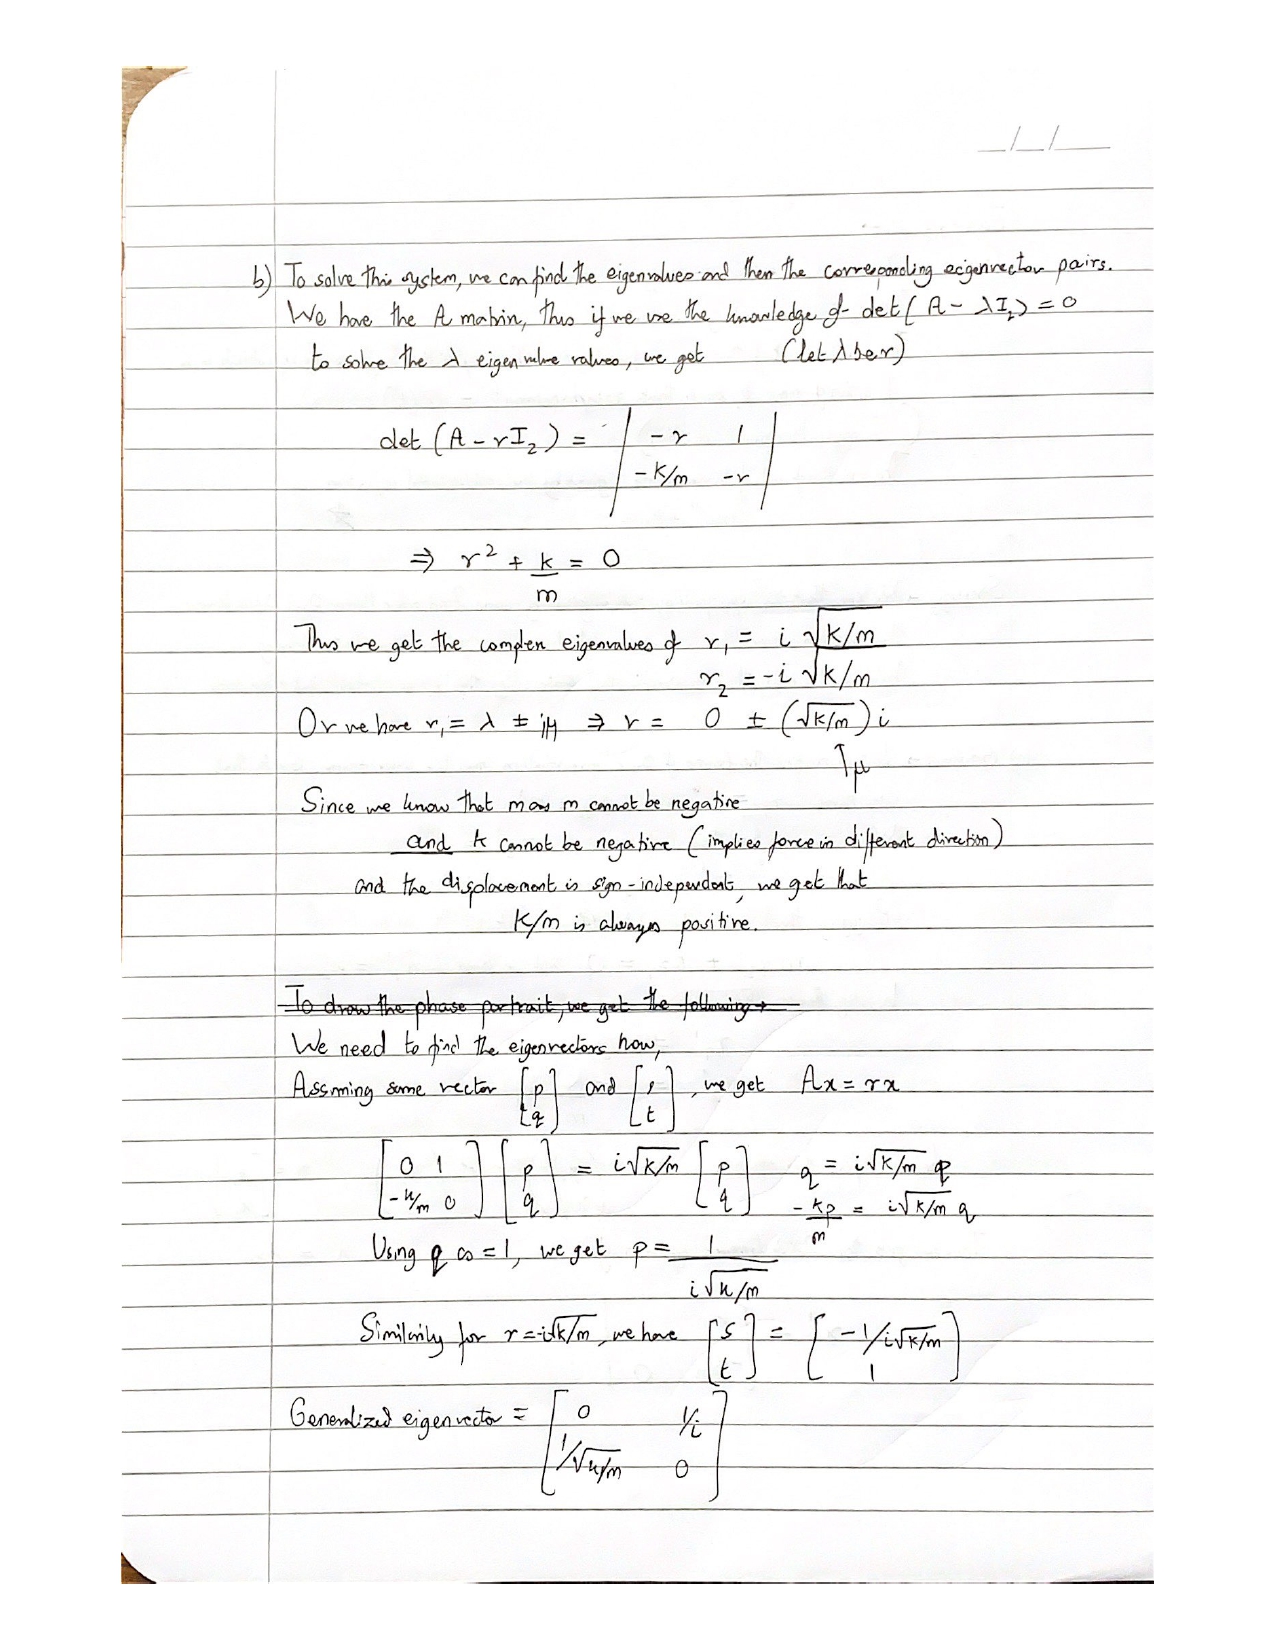 _/_/__
b) To solve this system, we can find the eigenvalues and then the corresponding eigenvector pairs.
We have the A matrix, thus if we use the knowledge of det(A - λI₂) = 0
to solve the λ eigen value values, we get (let λ be r)
det (A - rI₂) = | -r 1 |
| -k/m -r |
⇒ r² + k/m = 0
Thus we get the complex eigenvalues of r₁ = i √k/m
r₂ = -i √k/m
Or we have r₁ = λ ± iμ ⇒ r = 0 ± (√k/m) i
↑μ
Since we know that mass m cannot be negative
and k cannot be negative (implies force in different direction)
and the displacement is sign-independent, we get that
K/m is always positive.
To draw the phase portrait, we get the following →
We need to find the eigenvectors now,
Assming some vector [p q] and [s t], we get Ax = rx
[0 1] [p] = i√k/m [p] q = i√k/m p
[-k/m 0] [q] [q] -kp/m = i√k/m q
Using q as = 1, we get p = 1/i√k/m
Similarily for r = -i√k/m, we have [s] = [-1/i√k/m]
[t] [1]
Generalized eigenvector = [0 1/i]
[1/√k/m 0]